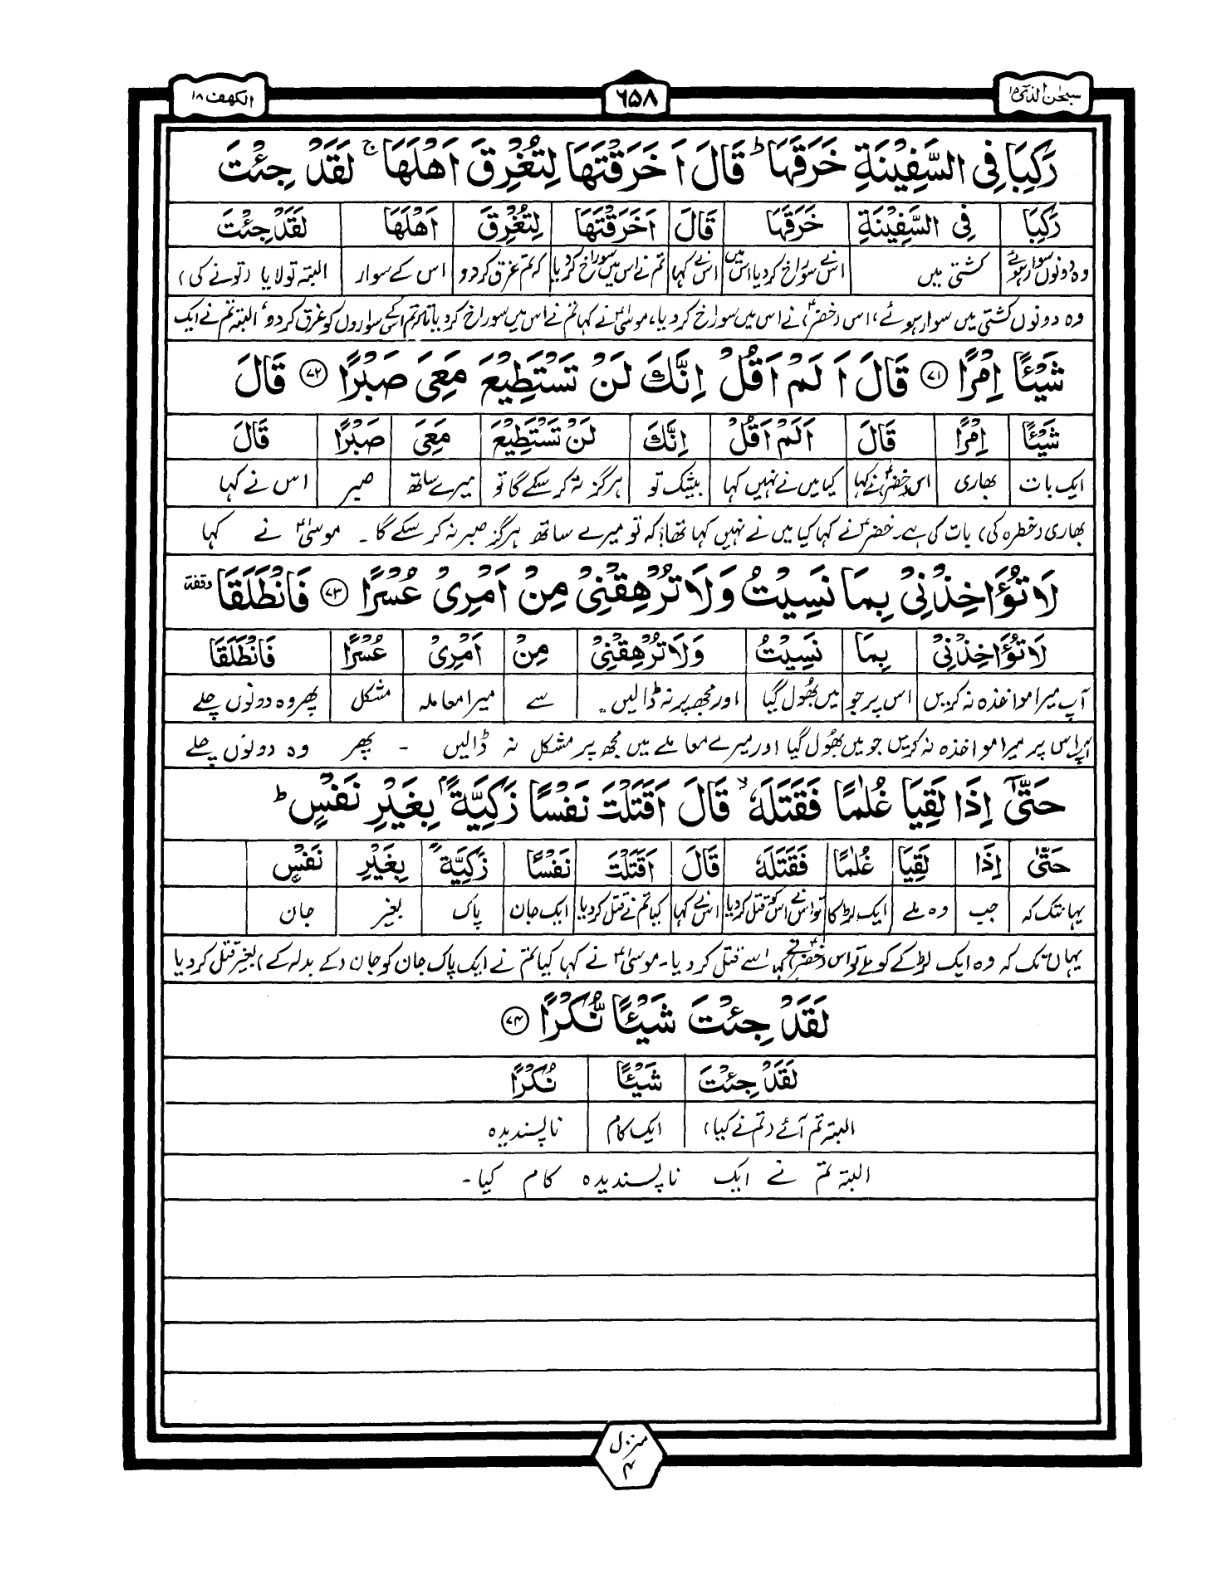 سبحٰن الذی ۱۵
۶۵۸
الکھف ۱۸
رَكِبَا فِی السَّفِیْنَةِ خَرَقَهَا ؕ قَالَ اَ خَرَقْتَهَا لِتُغْرِقَ اَهْلَهَا ۚ لَقَدْ جِئْتَ
رَكِبَا فِی السَّفِیْنَةِ خَرَقَهَا قَالَ اَخَرَقْتَهَا لِتُغْرِقَ اَهْلَهَا لَقَدْ جِئْتَ
وہ دونوں سوار ہوئے کشتی میں اس نے سوراخ کر دیا اس میں اس نے کہا تم نے اس میں سوراخ کر دیا کہ تم غرق کر دو اس کے سوار البتہ تو لایا (تو نے کی)
وہ دونوں کشتی میں سوار ہوئے، اس (خضرؑ) نے اس میں سوراخ کر دیا، موسیٰؑ نے کہا تم نے اس میں سوراخ کر دیا تاکہ تم اس کے سواروں کو غرق کر دو، البتہ تم نے ایک
شَیْـًٔا اِمْرًا ﴿۷۱﴾ قَالَ اَ لَمْ اَقُلْ اِنَّكَ لَنْ تَسْتَطِیْعَ مَعِیَ صَبْرًا ﴿۷۲﴾ قَالَ
شَیْـًٔا اِمْرًا قَالَ اَلَمْ اَقُلْ اِنَّكَ لَنْ تَسْتَطِیْعَ مَعِیَ صَبْرًا قَالَ
ایک بات بھاری اس (خضرؑ) نے کہا کیا میں نے نہیں کہا بیشک تو ہرگز نہ کر سکے گا تو میرے ساتھ صبر اس نے کہا
بھاری (خطرہ کی) بات کی ہے۔ خضرؑ نے کہا کیا میں نے نہیں کہا تھا؟ کہ تو میرے ساتھ ہرگز صبر نہ کر سکے گا ۔ موسیٰؑ نے کہا
لَا تُؤَاخِذْنِیْ بِمَا نَسِیْتُ وَلَا تُرْهِقْنِیْ مِنْ اَمْرِیْ عُسْرًا ﴿۷۳﴾ فَانْطَلَقَا وقفة
لَا تُؤَاخِذْنِیْ بِمَا نَسِیْتُ وَلَا تُرْهِقْنِیْ مِنْ اَمْرِیْ عُسْرًا فَانْطَلَقَا
آپ میرا مواخذہ نہ کریں اس پر جو میں بھول گیا اور مجھ پر نہ ڈالیں سے میرا معاملہ مشکل پھر وہ دونوں چلے
آپ اس پر میرا مواخذہ نہ کریں جو میں بھول گیا اور میرے معاملے میں مجھ پر مشکل نہ ڈالیں - پھر وہ دونوں چلے
حَتّٰۤی اِذَا لَقِیَا غُلٰمًا فَقَتَلَهٗ ۙ قَالَ اَقَتَلْتَ نَفْسًا زَكِیَّةًۢ بِغَیْرِ نَفْسٍ ؕ
حَتّٰی اِذَا لَقِیَا غُلٰمًا فَقَتَلَهٗ قَالَ اَقَتَلْتَ نَفْسًا زَكِیَّةً بِغَیْرِ نَفْسٍ
یہانتک کہ جب وہ ملے ایک لڑکا تو اس نے اس کو قتل کر دیا اس نے کہا کیا تم نے قتل کر دیا ایک جان پاک بغیر جان
یہاں تک کہ وہ ایک لڑکے کو ملے تو اس (خضرؑ) نے اسے قتل کر دیا۔ موسیٰؑ نے کہا کیا تم نے ایک پاک جان کو جان (کے بدلہ کے) بغیر قتل کر دیا
لَقَدْ جِئْتَ شَیْـًٔا نُّكْرًا ﴿۷۴﴾
لَقَدْ جِئْتَ شَیْـًٔا نُكْرًا
البتہ تم آئے (تم نے کیا) ایک کام ناپسندیدہ
البتہ تم نے ایک ناپسندیدہ کام کیا۔
منزل
۴